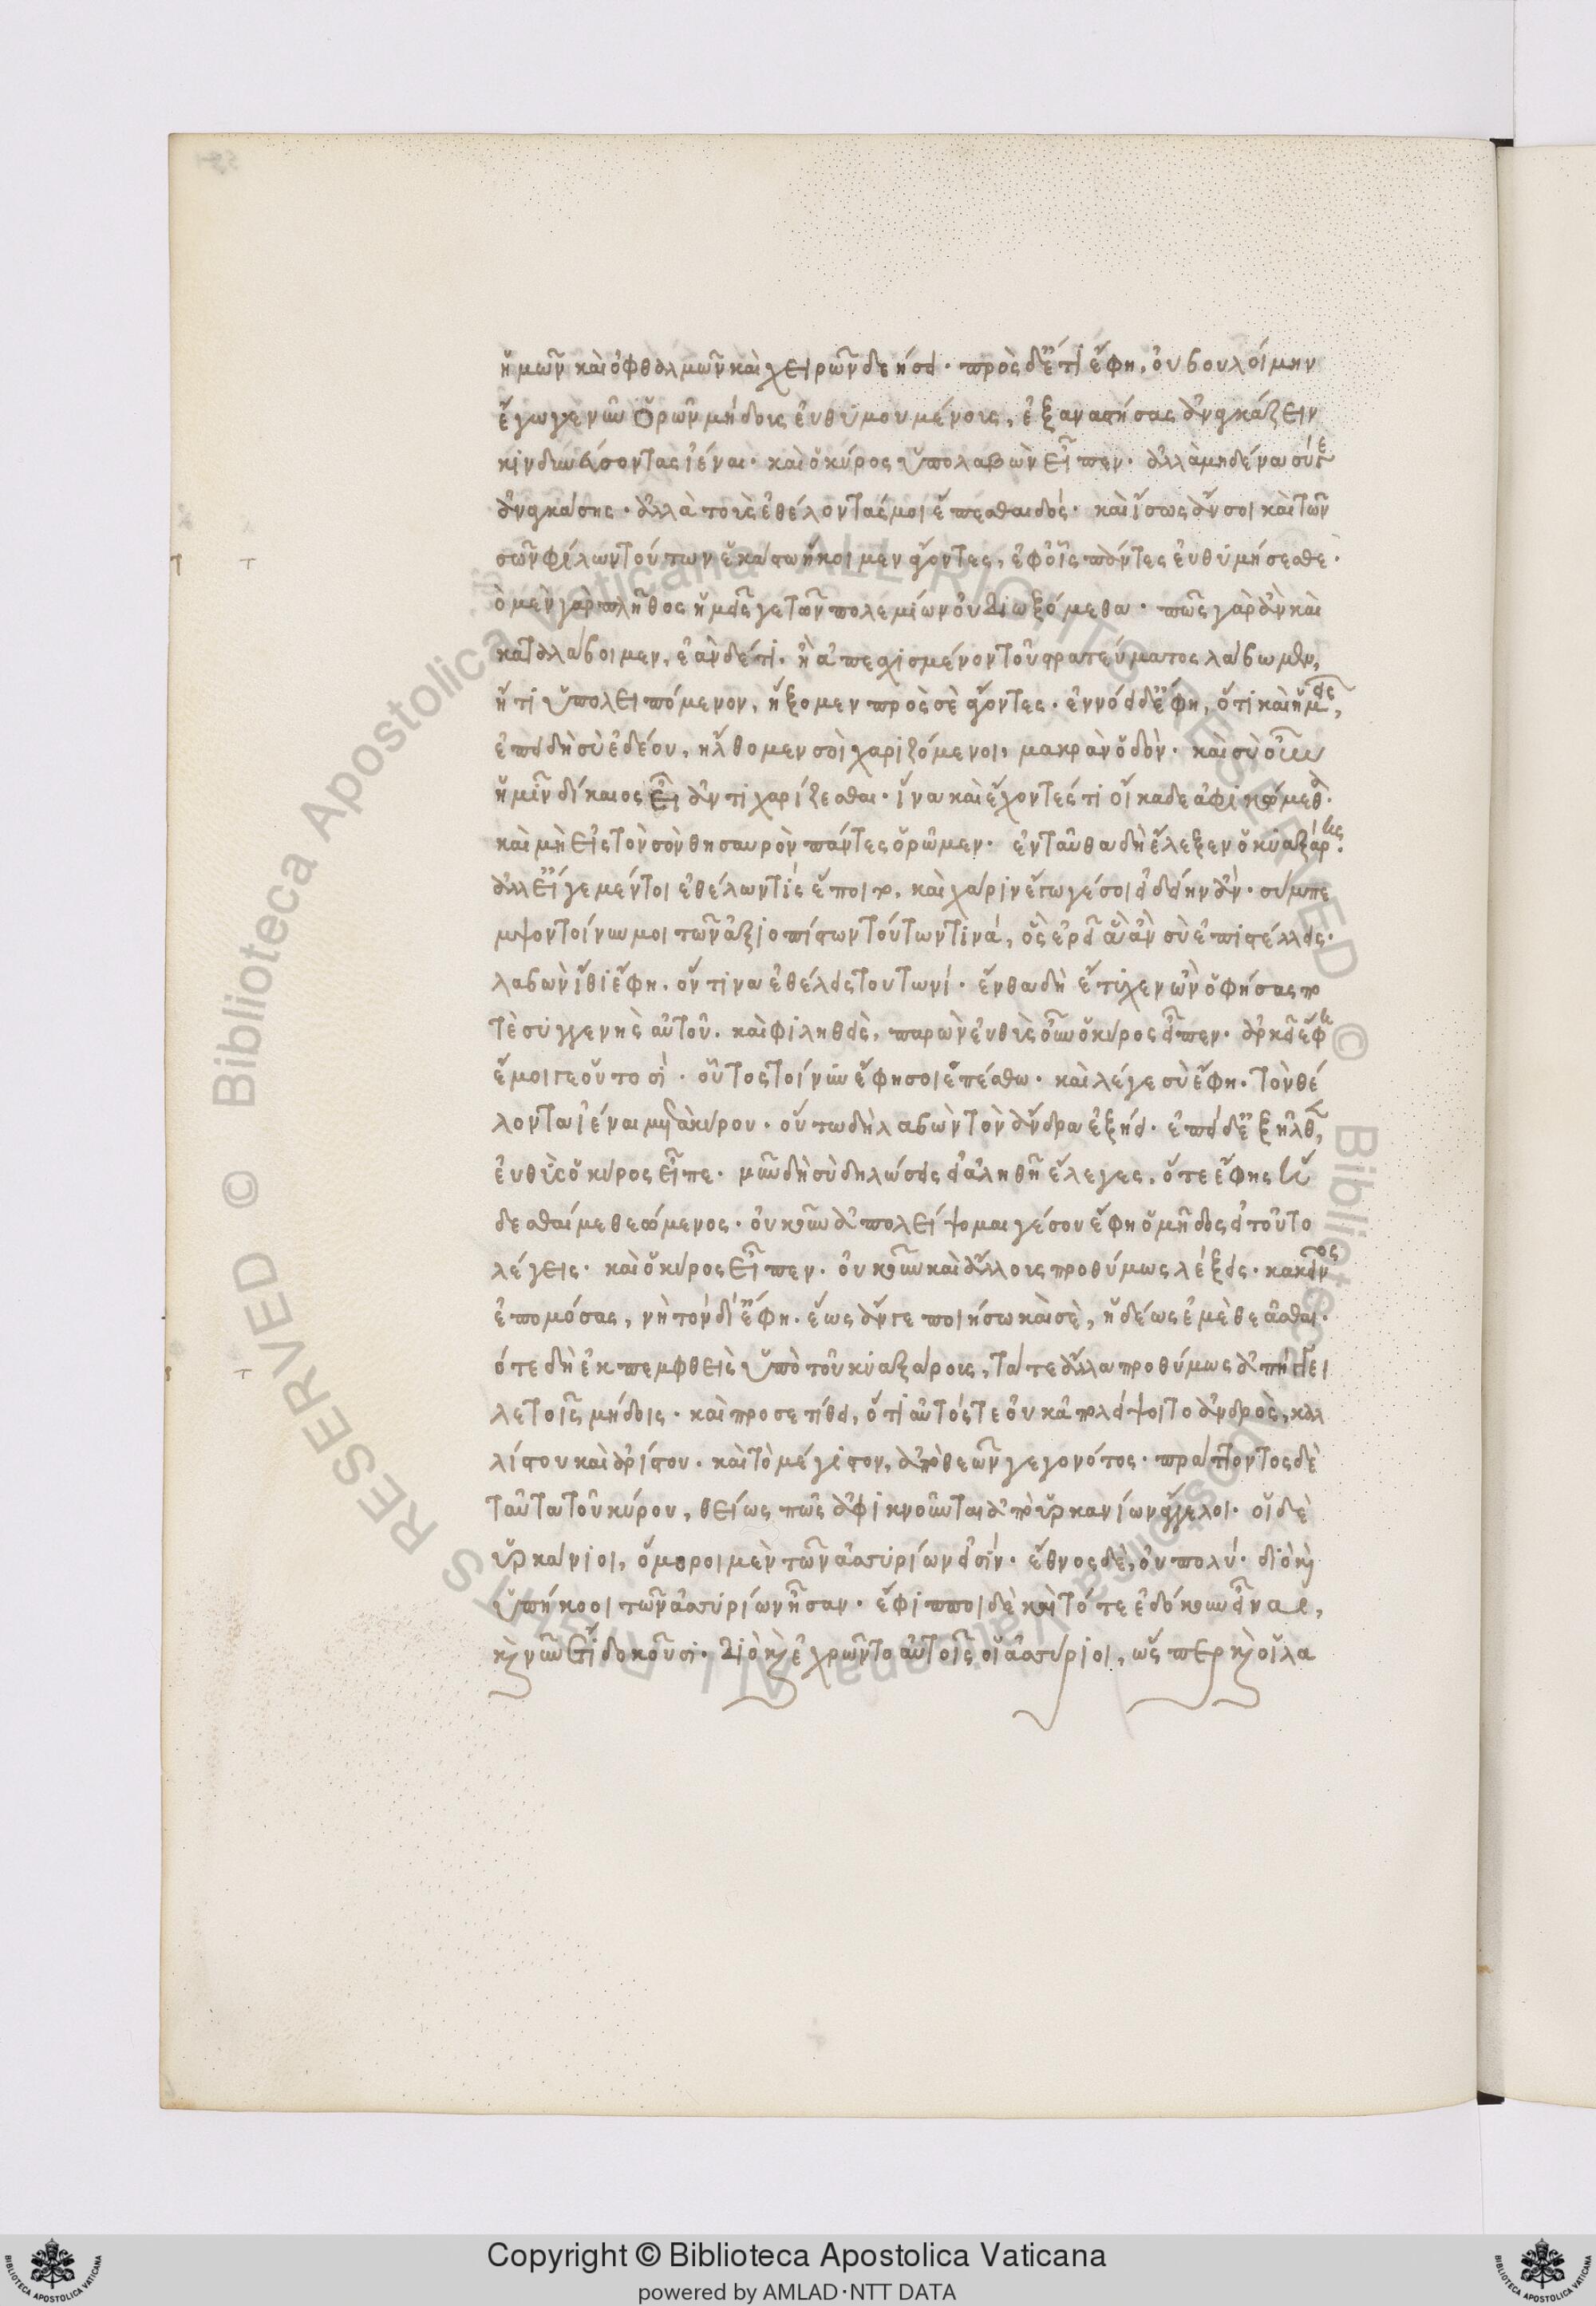 ἡμῶν καὶ ὀφθαλμῶν καὶ χειρῶν δεήσει· πρὸς δ' ἔτι ἔφη, οὐ βουλοίμην
ἔγωγε νῦν ὁρῶν μήδους εὐθυμουμένους, ἐξαναστήσας ἀναγκάζειν
κινδυνεύσοντας ἰέναι· καὶ ὁ κύρος ὑπολαβὼν εἶπεν· ἀλλὰ μηδένα σύγε
ἀναγκάσης· ἀλλὰ τοὺς ἐθέλοντάς μοι ἕπεσθαι δός· καὶ ἴσως ἄν σοι καὶ τῶν
σῶν φίλων τούτων ἑκάστω ἥκοιμεν ἄγοντες, ἐφ' οἷς πάντες εὐθυμήσεσθε·
ὸ μὲν γὰρ πλῆθος ἡμεῖς γε τῶν πολεμίων οὐ διωξόμεθα· πῶς γὰρ ἂν καὶ
καταλάβοιμεν, ἐὰν δέ τι. ἢ ἀπεσχισμένον τοῦ στρατεύματος λάβωμεν,
ἤ τι ὑπολειπόμενον, ἥξομεν πρὸς σὲ ἄγοντες· ἐννόει δ' ἔφη, ὅτι καὶ ἡμεῖς,
ἐπειδὴ σὺ ἐδέου, ἤλθομεν σοὶ χαριζόμενοι, μακρὰν ὁδόν· καὶ σὺ οὖν
ἡμῖν δίκαιος εἶ ἀντιχαρίζεσθαι· ἵνα καὶ ἔχοντές τι οἴκαδε ἀφικώμεθα·
καὶ μὴ εἰς τὸν σὸν θησαυρὸν πάντες ὁρῶμεν· ἐνταῦθα δὴ ἔλεξεν ὁ κυαξάρης·
ἀλλ' εἴ γε μέντοι ἐθέλων τίς ἕποιτο, καὶ χάριν ἔγωγέ σοι εἰδείην ἄν· σύμπε
μψον τοίνυν μοι τῶν ἀξιοπίστων τούτων τινά, ὃς ἐρεῖ ἃ ἂν σὺ ἐπιστέλλεις·
λαβὼν ἴθι ἔφη. ὅντινα ἐθέλεις τουτωνί· ἔνθα δὴ ἔτυχεν ὢν ὁ φήσας πο
τὲ συγγενὴς αὐτοῦ. καὶ φιληθεὶς, παρὼν εὐθὺς οὖν ὁ κύρος εἶπεν· ἀρκεῖ ἔφη
ἔμοιγε οὑτοσί· οὗτος τοίνυν ἔφη σοι ἑπέσθω· καὶ λέγε σὺ ἔφη. τὸν θέ
λοντα ἰέναι μετὰ κύρου· οὕτω δὴ λαβὼν τὸν ἄνδρα ἐξήει· ἐπεὶ δ' ἐξῆλθεν,
εὐθὺς ὁ κύρος εἶπε· νῦν δὴ σὺ δηλώσεις εἰ ἀληθῆ ἔλεγες, ὅτε ἔφης ἥ
δεσθαί με θεώμενος· οὔκουν ἀπολείψομαι γέ σου ἔφη ὁ μῆδος εἰ τοῦτο
λέγεις· καὶ ὁ κύρος εἶπεν. οὐκοῦν καὶ ἄλλους προθύμως λέξεις· κἀκεῖνος
ἐπομόσας, νὴ τὸν δί' ἔφη. ἕως ἄν γε ποιήσω καὶ σὲ, ἡδέως ἐμὲ θεᾶσθαι·
ότε δὴ ἐκπεμφθεὶς ὑπὸ τοῦ κυαξάρους, τά τε ἄλλα προθύμως ἀπήγγει
λε τοῖς μήδοις· καὶ προσετίθει, ὅτι αὐτός τε οὐκ ἀπολείψοιτο ἀνδρὸς, καλ
λίστου καὶ ἀρίστου· καὶ τὸ μέγιστον, ἀπὸ θεῶν γεγονότος· πράττοντος δὲ
ταῦτα τοῦ κύρου, θείως πῶς ἀφικνοῦνται ἀπὸ ὑρκανίων ἄγγελοι· οἱ δὲ
ὑρκάνιοι, ὅμοροι μὲν τῶν ἀσσυρίων εἰσίν· ἔθνος δὲ, οὐ πολύ· διὸ καὶ
ὑπήκοοι τῶν ἀσσυρίων ἦσαν· ἔφιπποι δὲ καὶ τότε ἐδόκουν εἶναι,
καὶ νῦν ἔτι δοκοῦσι· διὸ καὶ ἐχρῶντο αὐτοῖς οἱ ἀσσύριοι, ὥσπερ καὶ οἱ λα
Copyright © Biblioteca Apostolica Vaticana
powered by AMLAD·NTT DATA